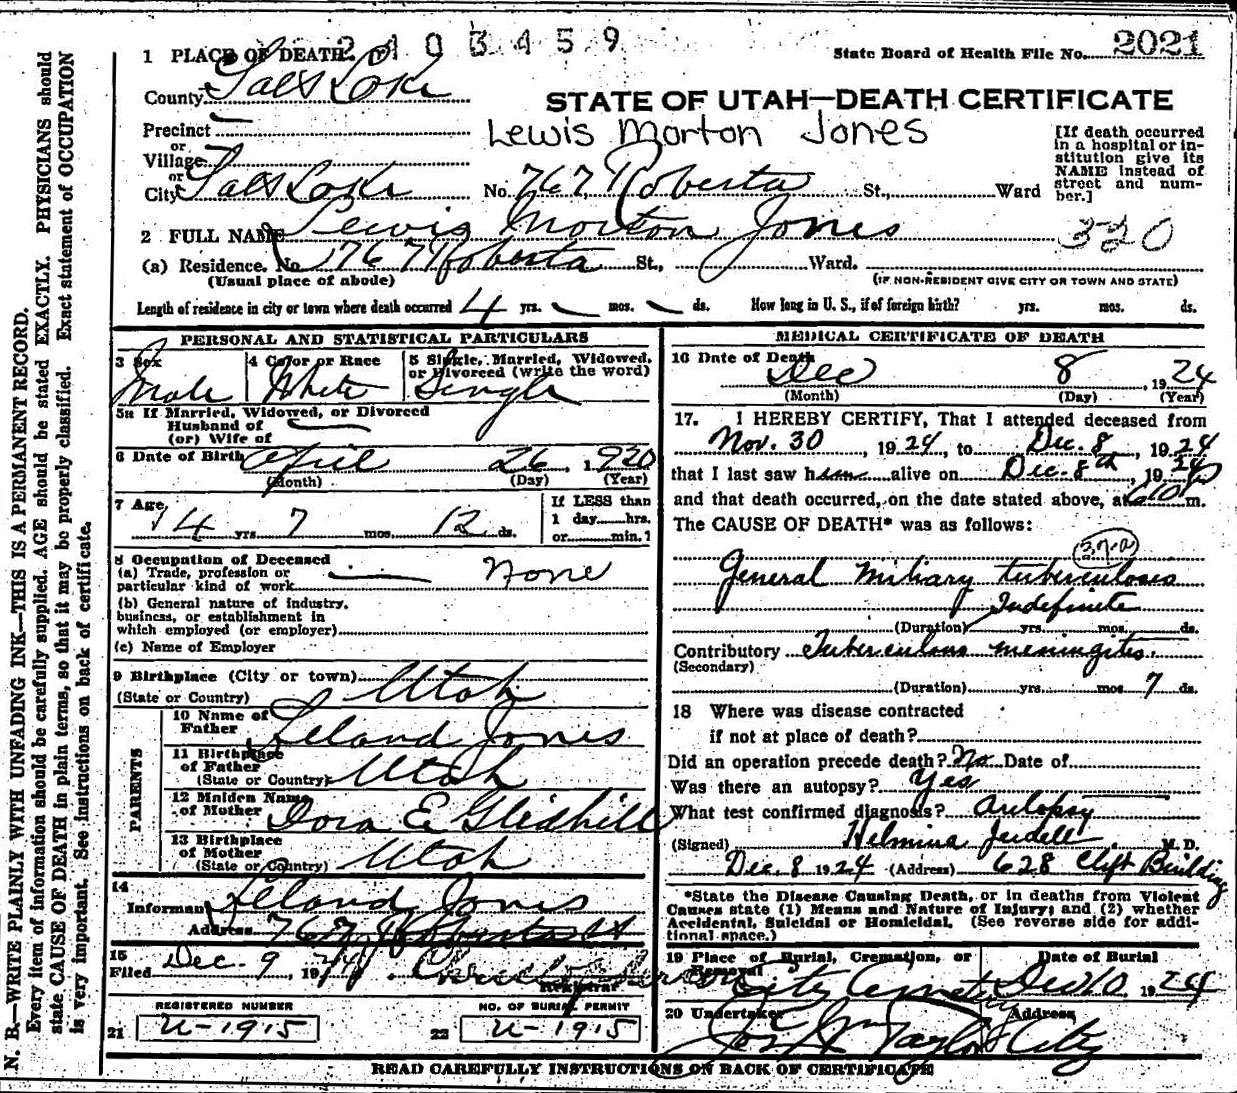 N. B.—WRITE PLAINLY WITH UNFADING INK—THIS IS A PERMANENT RECORD.
Every item of information should be carefully supplied. AGE should be stated EXACTLY. PHYSICIANS should
state CAUSE OF DEATH in plain terms, so that it may be properly classified. Exact statement of OCCUPATION
is very important. See instructions on back of certificate.
2103459
1 PLACE OF DEATH
State Board of Health File No. 2021
County Salt Lake
STATE OF UTAH—DEATH CERTIFICATE
Precinct
Lewis Morton Jones
or
Village
or
City Salt Lake No. 767 Roberta St., Ward
[If death occurred
in a hospital or in-
stitution give its
NAME instead of
street and num-
ber.]
2 FULL NAME Lewis Morton Jones
320
(a) Residence. No. 767 Roberta St., Ward.
(Usual place of abode) (IF NON-RESIDENT GIVE CITY OR TOWN AND STATE)
Length of residence in city or town where death occurred 4 yrs. — mos. — ds. How long in U. S., if of foreign birth? yrs. mos. ds.
PERSONAL AND STATISTICAL PARTICULARS
3 Sex 4 Color or Race 5 Single, Married, Widowed,
or Divorced (write the word)
Male White Single
5a If Married, Widowed, or Divorced
Husband of
(or) Wife of
6 Date of Birth April 26, 1920
(Month) (Day) (Year)
7 Age 4 yrs. 7 mos. 12 ds.
If LESS than
1 day hrs.
or min. ?
8 Occupation of Deceased
(a) Trade, profession or
particular kind of work None
(b) General nature of industry,
business, or establishment in
which employed (or employer)
(c) Name of Employer
9 Birthplace (City or town) Utah
(State or Country)
PARENTS
10 Name of
Father Leland Jones
11 Birthplace
of Father
(State or Country) Utah
12 Maiden Name
of Mother Dora E Gledhill
13 Birthplace
of Mother
(State or Country) Utah
14
Informant Leland Jones
Address 767 Roberta St
15
Filed Dec. 9, 1924
Registrar
REGISTERED NUMBER NO. OF BURIAL PERMIT
21 U-1915 22 U-1915
MEDICAL CERTIFICATE OF DEATH
16 Date of Death
Dec 8, 1924
(Month) (Day) (Year)
17. I HEREBY CERTIFY, That I attended deceased from
Nov. 30, 1924, to Dec. 8, 1924
that I last saw him alive on Dec. 8th, 1924
and that death occurred, on the date stated above, at 610 p m.
The CAUSE OF DEATH* was as follows:
General miliary tuberculosis
Indefinite
(Duration) yrs. mos. ds.
Contributory Tuberculous meningitis.
(Secondary)
(Duration) yrs. mos. 7 ds.
18 Where was disease contracted
if not at place of death?
Did an operation precede death? No Date of
Was there an autopsy? Yes
What test confirmed diagnosis? Autopsy
(Signed) Helmina Jeidell M. D.
Dec. 8 1924 (Address) 628 Clift Building
*State the Disease Causing Death, or in deaths from Violent
Causes state (1) Means and Nature of Injury; and (2) whether
Accidental, Suicidal or Homicidal. (See reverse side for addi-
tional space.)
19 Place of Burial, Cremation, or
Removal
Date of Burial
City Cemetery Dec 10, 1924
20 Undertaker Address
Jos. Wm Taylor City
READ CAREFULLY INSTRUCTIONS ON BACK OF CERTIFICATE